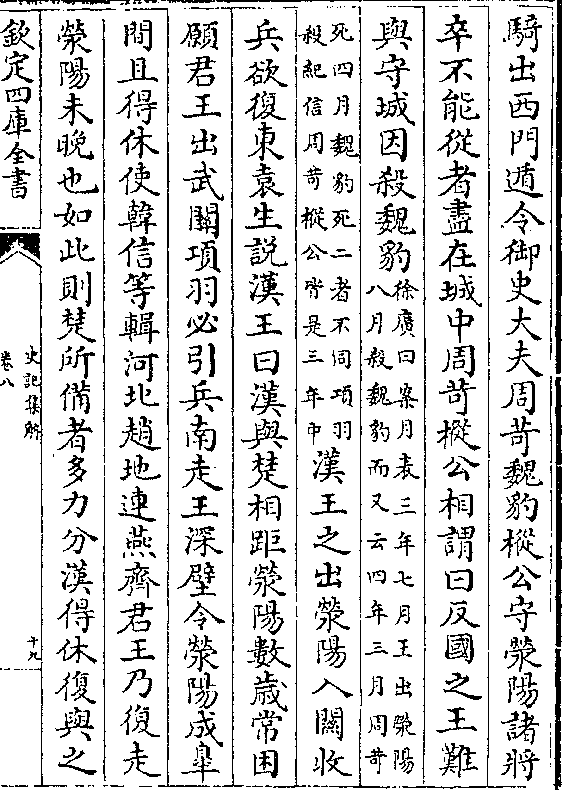 騎出西門遁令御史大夫周苛魏豹樅公守滎陽諸將
卒不能從者盡在城中周苛樅公相謂曰反國之王難
與守城因殺魏豹徐廣曰案月表三年七月王出滎陽
八月殺魏豹而又云四年三月周苛
死四月魏豹死二者不同項羽
殺紀信周苛樅公皆是三年中漢王之出滎陽入關收
兵欲復東袁生説漢王曰漢與楚相距滎陽數歲常困
願君王出武關項羽必引兵南走王深壁令滎陽成臯
間且得休使韓信等輯河北趙地連燕齊君王乃復走
滎陽未晚也如此則楚所備者多力分漢得休復與之
欽定四庫全書
史記集解
卷八
十九